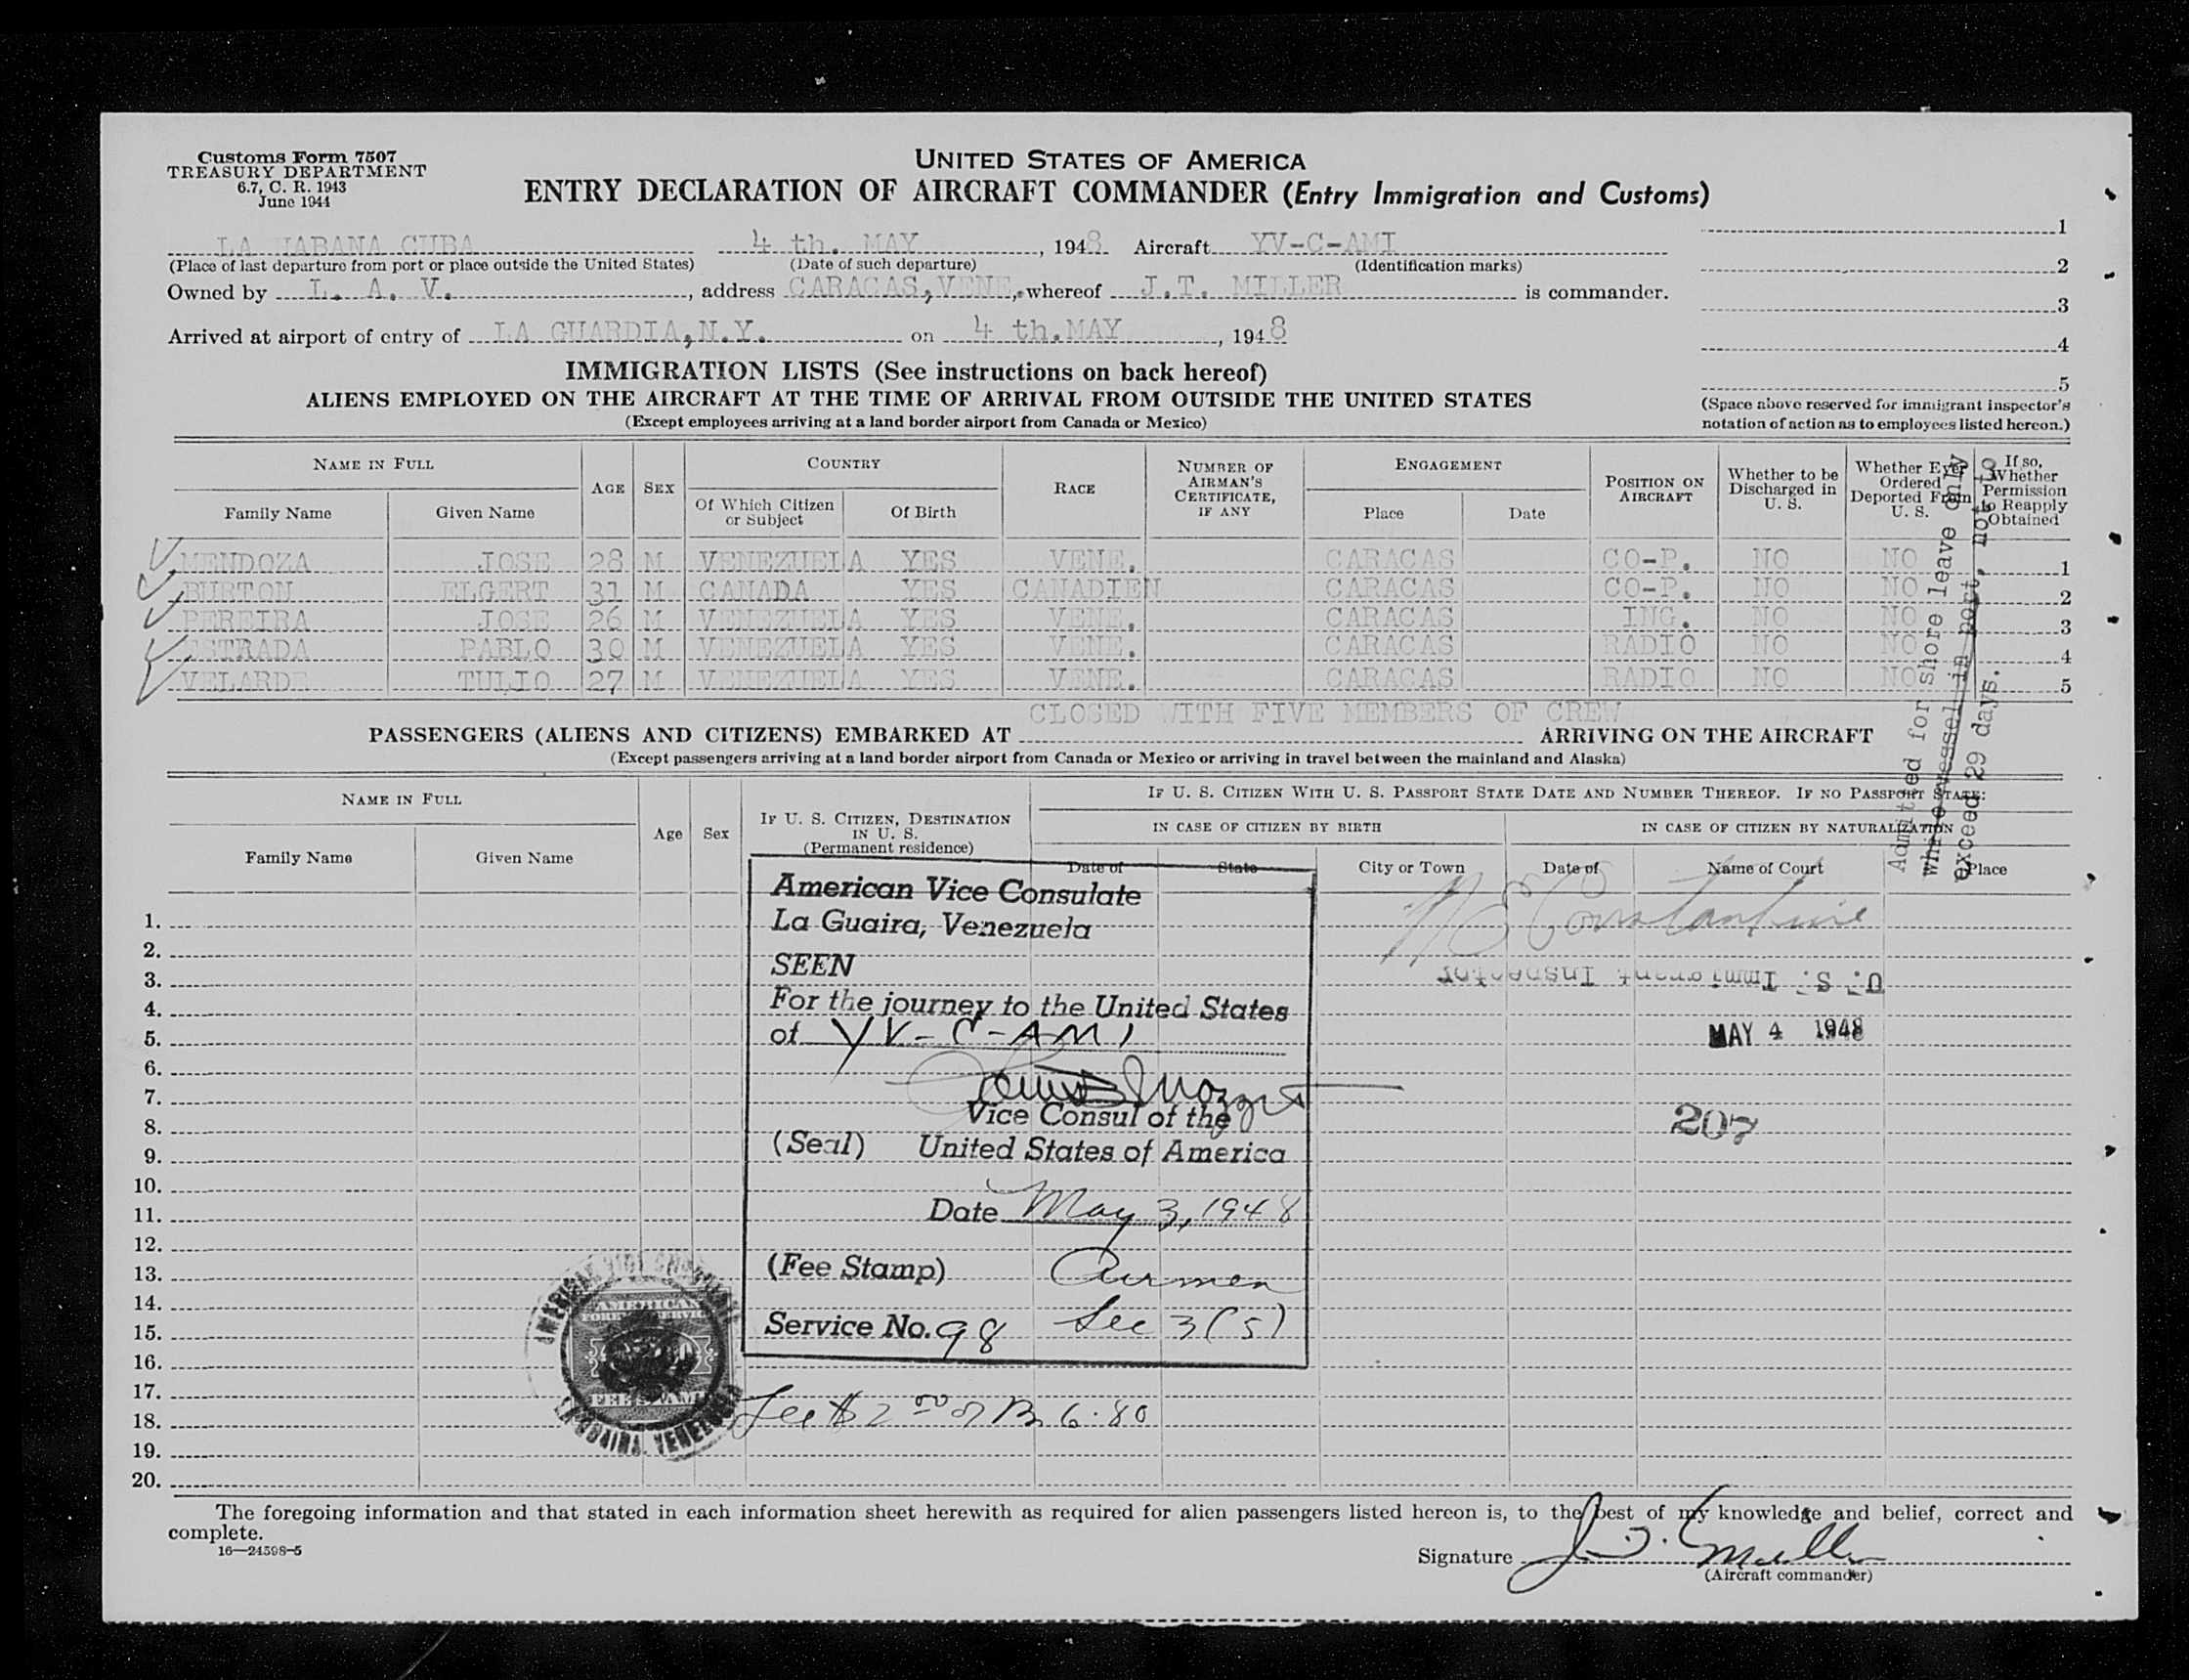 Customs Form 7507
TREASURY DEPARTMENT
6.7, C. R. 1943
June 1944
UNITED STATES OF AMERICA
ENTRY DECLARATION OF AIRCRAFT COMMANDER (Entry Immigration and Customs)
LA HABANA CUBA 4 th. MAY, 1948 Aircraft YV-C-AMI
(Place of last departure from port or place outside the United States) (Date of such departure) (Identification marks)
Owned by L. A. V., address CARACAS, VENE., whereof J.T. MILLER is commander.
Arrived at airport of entry of LA GUARDIA, N.Y. on 4 th. MAY, 1948
1
2
3
4
5
(Space above reserved for immigrant inspector's
notation of action as to employees listed hereon.)
IMMIGRATION LISTS (See instructions on back hereof)
ALIENS EMPLOYED ON THE AIRCRAFT AT THE TIME OF ARRIVAL FROM OUTSIDE THE UNITED STATES
(Except employees arriving at a land border airport from Canada or Mexico)
NAME IN FULL AGE SEX COUNTRY RACE NUMBER OF AIRMAN'S CERTIFICATE, IF ANY ENGAGEMENT POSITION ON AIRCRAFT Whether to be Discharged in U. S. Whether Ever Ordered Deported From U. S. If so, Whether Permission to Reapply Obtained
Family Name Given Name Of Which Citizen or Subject Of Birth Place Date
MENDOZA JOSE 28 M VENEZUELA YES VENE. CARACAS CO-P. NO NO 1
BURTON ELGERT 31 M CANADA YES CANADIEN CARACAS CO-P. NO NO 2
PEREIRA JOSE 26 M VENEZUELA YES VENE. CARACAS ING. NO NO 3
ESTRADA PABLO 30 M VENEZUELA YES VENE. CARACAS RADIO NO NO 4
VELARDE TULIO 27 M VENEZUELA YES VENE. CARACAS RADIO NO NO 5
Admitted for shore leave only
while vessel in port, not to
exceed 29 days.
CLOSED WITH FIVE MEMBERS OF CREW
PASSENGERS (ALIENS AND CITIZENS) EMBARKED AT ARRIVING ON THE AIRCRAFT
(Except passengers arriving at a land border airport from Canada or Mexico or arriving in travel between the mainland and Alaska)
NAME IN FULL Age Sex IF U. S. CITIZEN, DESTINATION IN U. S. (Permanent residence) IF U. S. CITIZEN WITH U. S. PASSPORT STATE DATE AND NUMBER THEREOF. IF NO PASSPORT STATE:
IN CASE OF CITIZEN BY BIRTH IN CASE OF CITIZEN BY NATURALIZATION
Family Name Given Name Date of State City or Town Date of Name of Court Place
1.
2.
3.
4.
5.
6.
7.
8.
9.
10.
11.
12.
13.
14.
15.
16.
17.
18.
19.
20.
American Vice Consulate
La Guaira, Venezuela
SEEN
For the journey to the United States
of YV-C-AMI
Vice Consul of the
(Seal) United States of America
Date May 3, 1948
(Fee Stamp) Airmen
Service No. 98 Sec 3(5)
Constantine
U. S. Immigrant Inspector
MAY 4 1948
207
AMERICAN
FEE STAMP
Fee $2.00 or Bs 6.80
The foregoing information and that stated in each information sheet herewith as required for alien passengers listed hereon is, to the best of my knowledge and belief, correct and
complete.
16—24598-5
Signature J. T. Miller
(Aircraft commander)